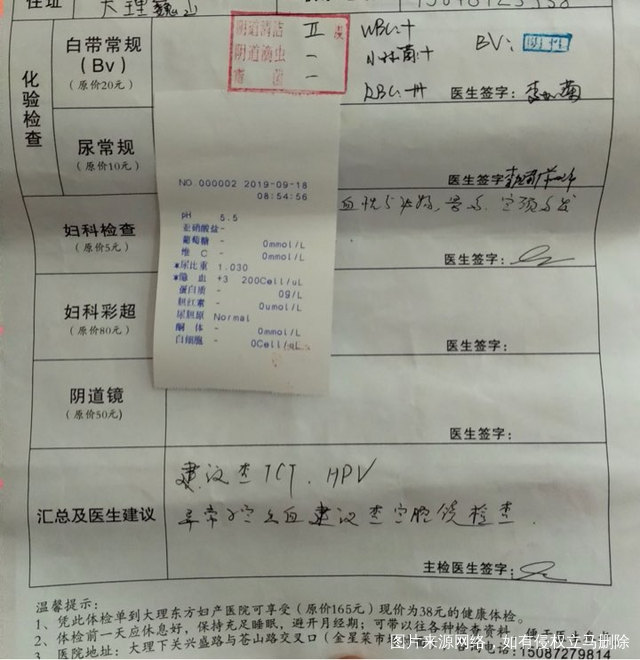 住址 大理巍山
化验检查
白带常规
(Bv)
(原价20元)
阴道清洁 II 度
阴道滴虫 -
霉菌 -
WBC:+
小杆菌+
RBC:+++
BV: 阴性
医生签字:
尿常规
(原价10元)
医生签字
NO.000002 2019-09-18
08:54:56
pH 5.5
亚硝酸盐-
葡萄糖 - 0mmol/L
维 C - 0mmol/L
*尿比重 1.030
*隐 血 +3 200Cell/uL
蛋白质 - 0g/L
胆红素 - 0umol/L
尿胆原 Normal
酮 体 - 0mmol/L
白细胞 - 0Cell/uL
妇科检查
(原价5元)
医生签字:
妇科彩超
(原价80元)
医生签字:
阴道镜
(原价50元)
医生签字:
汇总及医生建议
建议查TCT、HPV
异常子宫出血建议查宫腔镜检查.
主检医生签字:
温馨提示:
1、凭此体检单到大理东方妇产医院可享受(原价165元)现价为38元的健康体检。
2、体检前一天应休息好,保持充足睡眠,避开月经期;可带以往各种检查资料
3、医院地址:大理下关兴盛路与苍山路交叉口(金星菜市场
电话:15087279814
图片来源网络,如有侵权立马删除